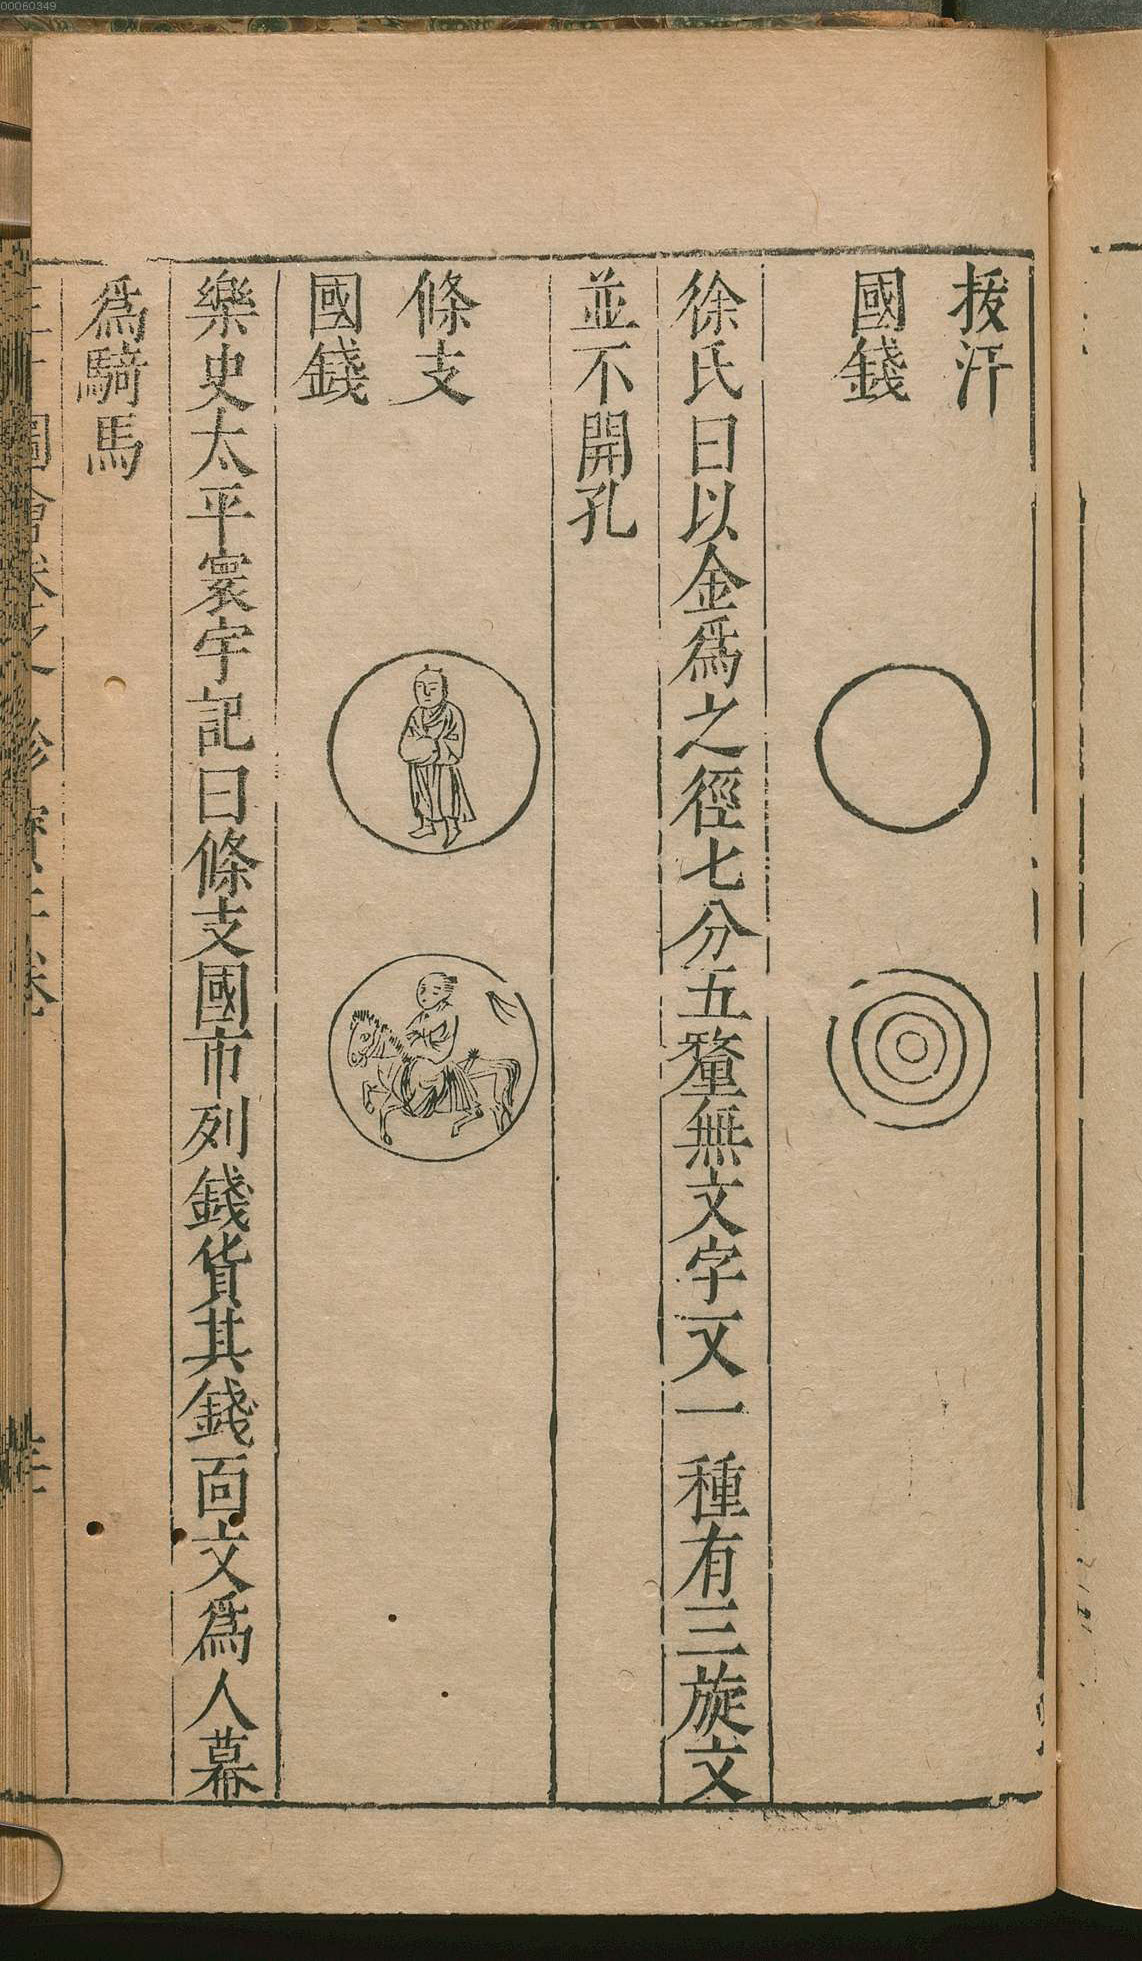 00060349
拔汗
國錢
徐氏曰以金爲之徑七分五釐無文字又一種有三旋文
並不開孔
條支
國錢
樂史太平寰宇記曰條支國市列錢貨其錢面文爲人幕
爲騎馬
圖會卷之 珍寶 卷